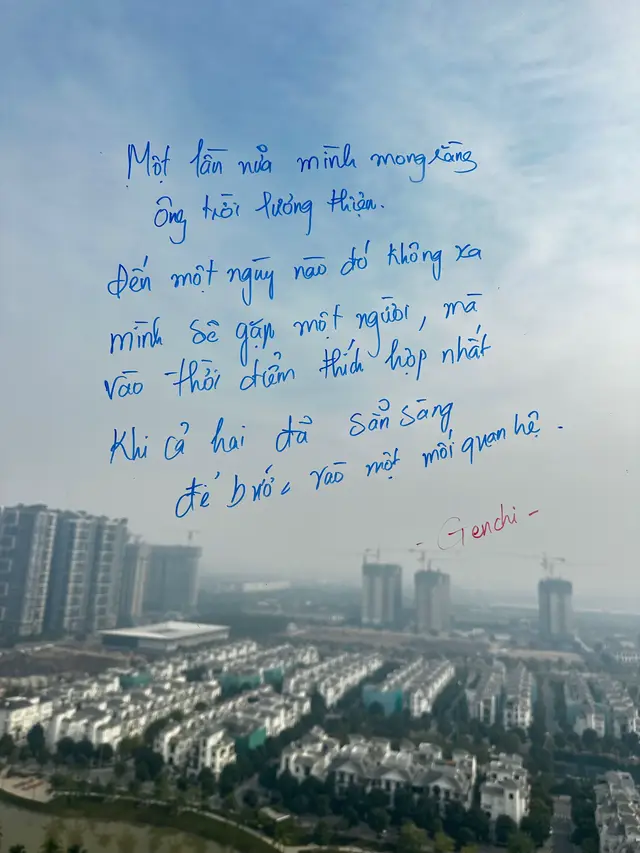 Một lần nữa mình mong rằng
ông trời lương thiện.
Đến một ngày nào đó không xa
mình sẽ gặp một người, mà
vào thời điểm thích hợp nhất
Khi cả hai đã sẵn sàng
để bước vào một mối quan hệ.
- Genchi -